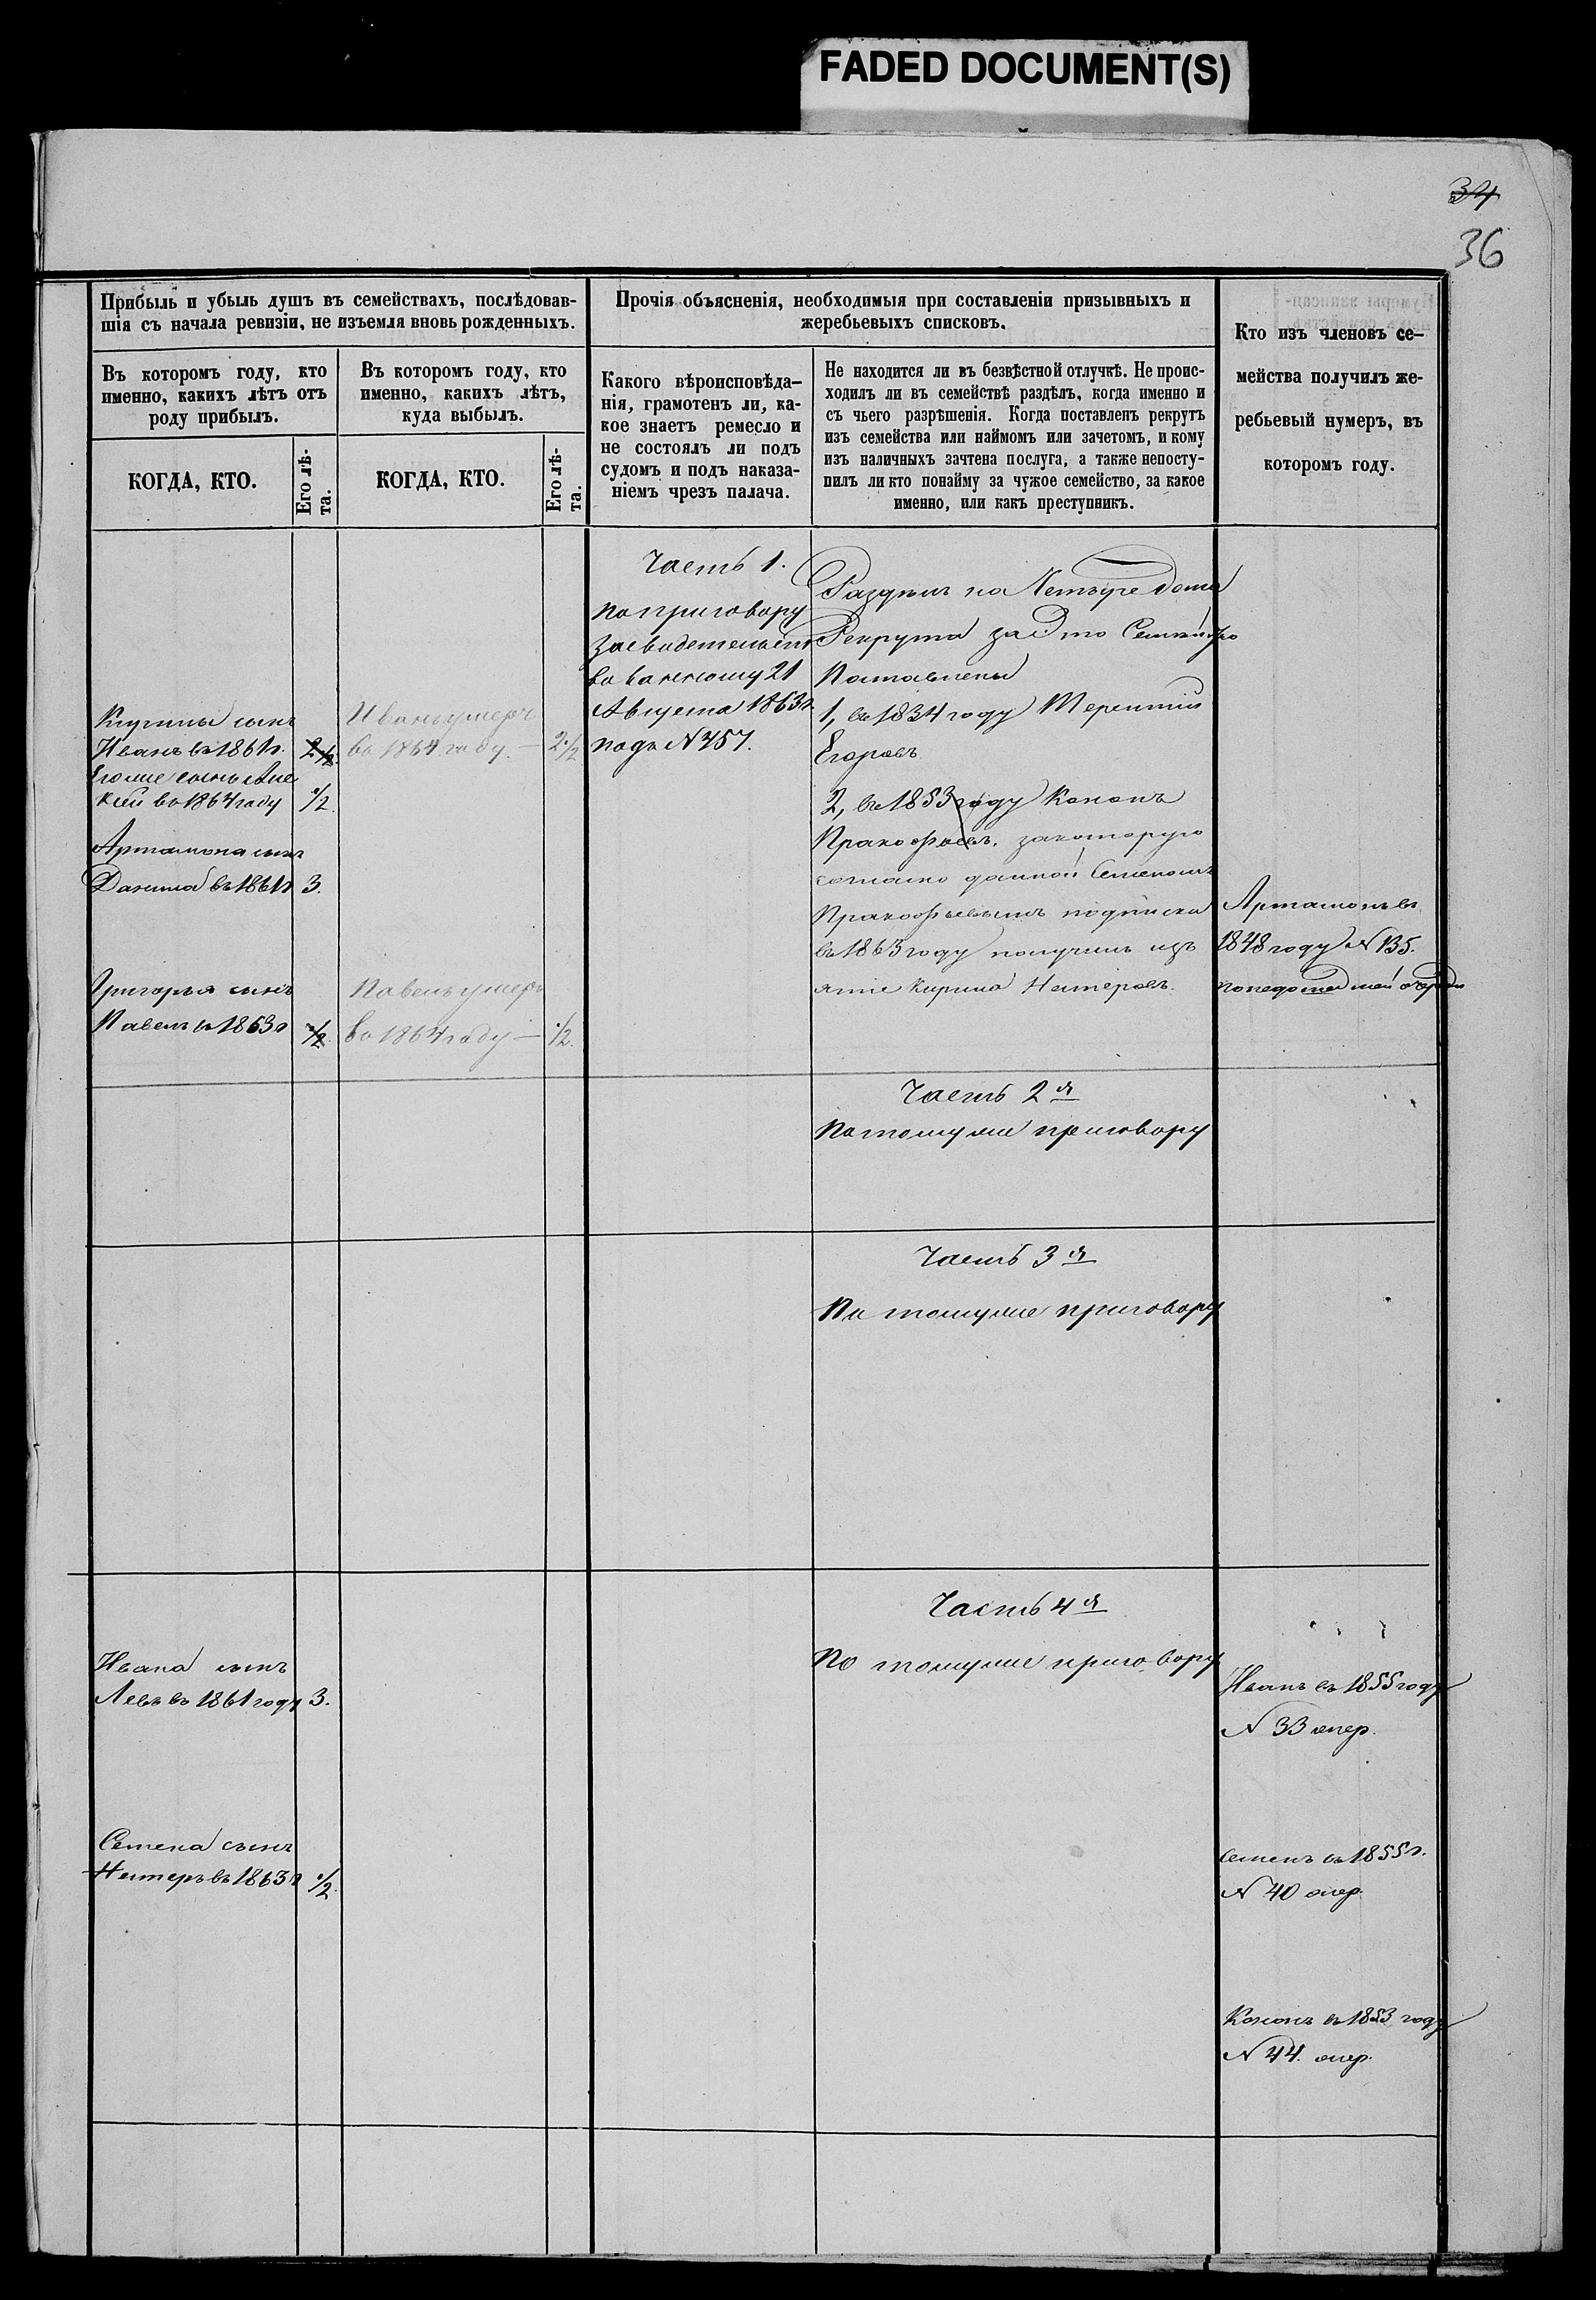 FADED DOCUMENT(S)
34
36
Прибыль и убыль душъ въ семействахъ, послѣдовав-
шія съ начала ревизіи, не изъемля вновь рожденныхъ.
Въ которомъ году, кто
именно, какихъ лѣтъ отъ
роду прибылъ.
КОГДА, КТО.
Его лѣ-
та.
Въ которомъ году, кто
именно, какихъ лѣтъ,
куда выбылъ.
КОГДА, КТО.
Его лѣ-
та.
Прочія объясненія, необходимыя при составленіи призывныхъ и
жеребьевыхъ списковъ.
Какого вѣроисповѣда-
нія, грамотенъ ли, ка-
кое знаетъ ремесло и
не состоялъ ли подъ
судомъ и подъ наказа-
ніемъ чрезъ палача.
Не находится ли въ безвѣстной отлучкѣ. Не проис-
ходилъ ли въ семействѣ раздѣлъ, когда именно и
съ чьего разрѣшенія. Когда поставленъ рекрутъ
изъ семейства или наймомъ или зачетомъ, и кому
изъ наличныхъ зачтена послуга, а также непосту-
пилъ ли кто понайму за чужое семейство, за какое
именно, или какъ преступникъ.
Кто изъ членовъ се-
мейства получилъ же-
ребьевый нумеръ, въ
которомъ году.
сынъ
Иванъ въ 1861г. 2 1/2
Егоже сынъ Але
ксей въ 1864 году 1/2
Артамона сынъ
Данила въ 1861г 3.
Григорья сынъ
Павелъ в 1863г 1/2
Ивана сынъ
Левъ въ 1861 году 3.
Семена сынъ
Нестеръ въ 1863г 1/2
Иванъ умеръ
въ 1864 году. — 2 1/2
Павелъ умеръ
въ 1864 году — 1/2.
Часть 1.
по приговору
засвидетельст
вованному 21
Августа 1863г
подъ N 457.
Раздѣлъ на Четыре дома
Рекрута за Это Семейство
Поставлены
1, въ 1834 году Терентий
Егоровъ
2, въ 1853 году Кононъ
Пракофьевъ. закоторую
согласно данной Семеномъ
Пракофьевымъ подписки
въ 1863 году получилъ
Кирила Нестеровъ.
Часть 2я
Потомуже приговору
Часть 3я
По томуже приговору
Часть 4я
По томуже приговору
Артамонъ въ
1848 году N 135.
Иванъ въ 1855 году
N 33 очер.
Семенъ въ 1855г.
N 40 очер.
Кононъ въ 1853 году
N 44. очер.